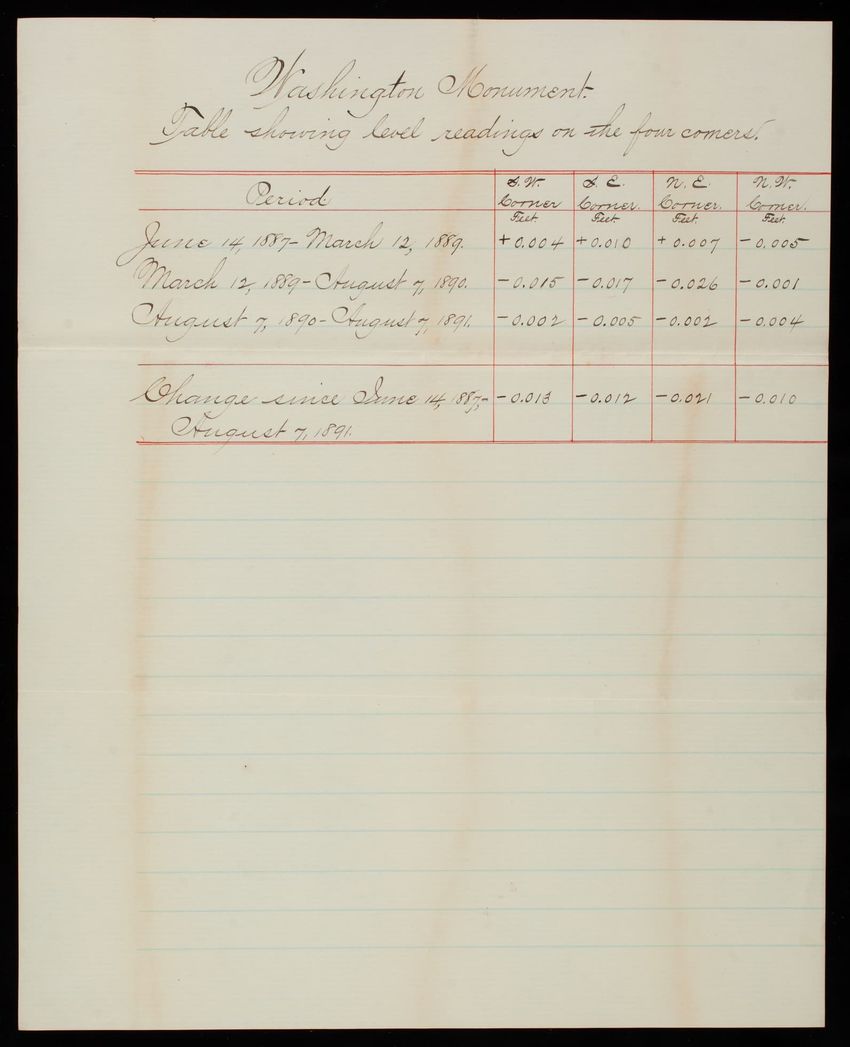 Washington Monument.
Table showing level readings on the four corners.
Period S.W. Corner Feet S.E. Corner. Feet. N.E. Corner. Feet. N.W. Corner. Feet.
June 14, 1887 - March 12, 1889. +0.004 +0.010 +0.007 -0.005
March 12, 1889 - August 7, 1890. -0.015 -0.017 -0.026 -0.001
August 7, 1890 - August 7, 1891. -0.002 -0.005 -0.002 -0.004
Change since June 14, 1887, - -0.013 -0.012 -0.021 -0.010
August 7, 1891.